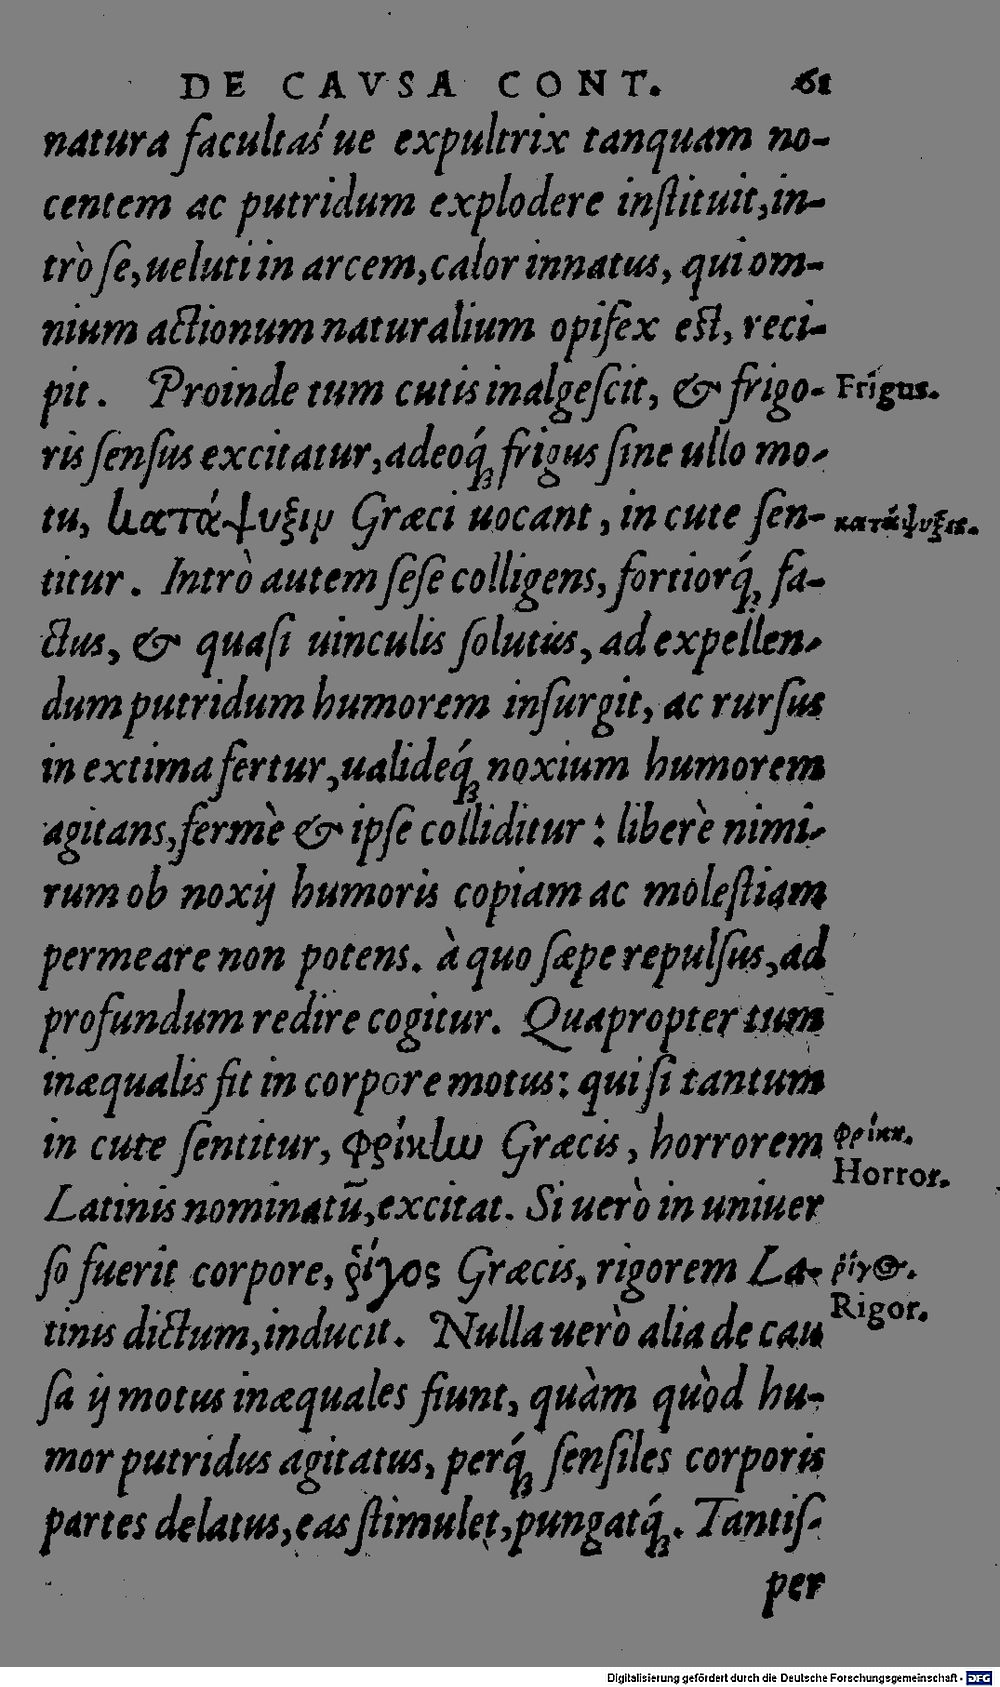 DE CAVSA CONT. 61
natura facultas´ue expultrix tanquam no-
centem ac putridum explodere inſtituit,in-
trò ſe,ueluti in arcem,calor innatus, qui om-
nium actionum naturalium opifex eſt, reci-
pit. Proinde tum cutis inalgeſcit, & frigo-
Frigus.
ris ſenſus excitatur,adeoq́ꝫ frigus ſine ullo mo-
tu, κατάψυξιν Græci uocant, in cute ſen-
κατάψυξις.
titur. Intrò autem ſeſe colligens, fortiorq́ꝫ fa-
ctus, & quaſi uinculis ſolutus, ad expellen-
dum putridum humorem inſurgit, ac rurſus
in extima fertur,ualideq́ꝫ noxium humorem
agitans,fermè & ipſe colliditur: liberè nimi-
rum ob noxij humoris copiam ac moleſtiam
permeare non potens. à quo ſæpe repulſus,ad
profundum redire cogitur. Quapropter tum
inæqualis fit in corpore motus: qui ſi tantum
in cute ſentitur, φρίκω Græcis, horrorem
φρίκη.
Horror.
Latinis nominatū,excitat. Si uerò in uniuer
ſo fuerit corpore, ῥίγος Græcis, rigorem La-
ῥίγος.
Rigor.
tinis dictum,inducit. Nulla uerò alia de cau
ſa ij motus inæquales fiunt, quàm quòd hu-
mor putridus agitatus, perq́ꝫ ſenſiles corporis
partes delatus,eas ſtimulet,pungatq́ꝫ. Tantiſ-
per
Digitalisierung gefördert durch die Deutsche Forschungsgemeinschaft - DFG